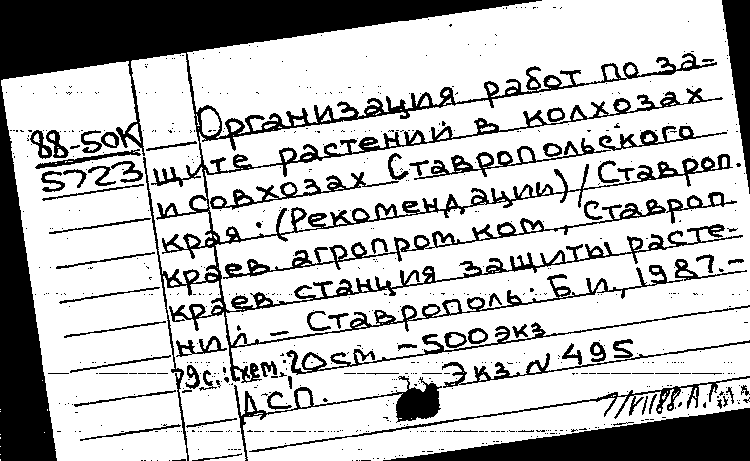 88-50К
5723
Организация работ по за-
щите растений в колхозах
и совхозах Ставропольского
края: (Рекомендации) / Ставроп.
краев. агропром. ком., Ставроп
краев. станция защиты расте-
ний. – Ставрополь: Б.и., 1987. –
79 с.: схем. 20 см. – 500 экз
Экз. N 495.
ДСП.
7/VII88.